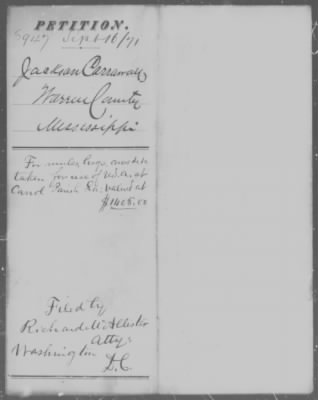 PETITION.
8947 Sept 16/71
Jackson Carraway
Warren County
Mississippi
For mules, hogs, corn &c
taken for use of U.S.A. at
Carrol Parish La. valued at
$1408.00
Filed by
Richard McAllister
Atty.
Washington
D.C.